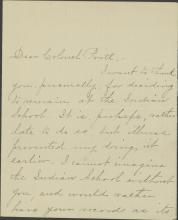 Dear Colonel Pratt,
I want to thank
you, personally, for deciding
to remain at the Indian
School. It is, perhaps, rather
late to do so but illness
prevented my doing it
earlier. I cannot imagine
the Indian School without
you, and would rather
have your records as its